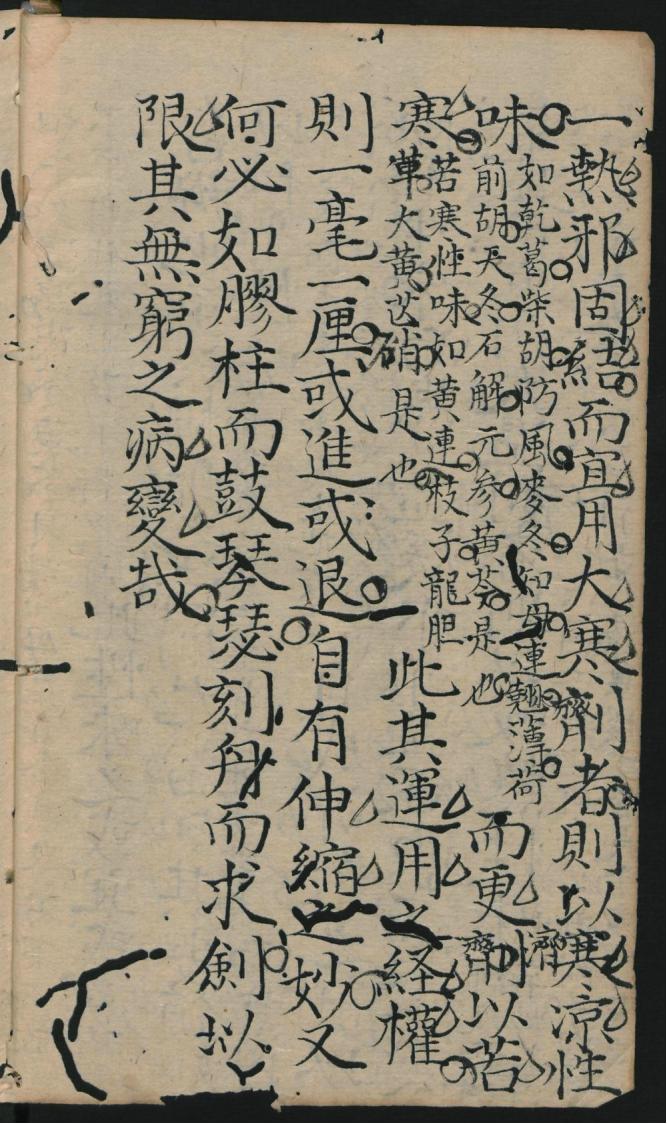 一熱邪固結而宜用大寒劑者則以寒凉性
味
如乾葛柴胡防風麥冬知母連翹薄荷
前胡天冬石解元参黄芩是也
而更劑以苦
濟
寒
苦寒性味如黄連枝子龍胆
草大黄芒硝是也
此其運用之経權
則一毫一厘或進或退自有伸縮之妙又
何必如膠柱而鼓琴瑟刻舟而求劍以
限其無窮之病變哉